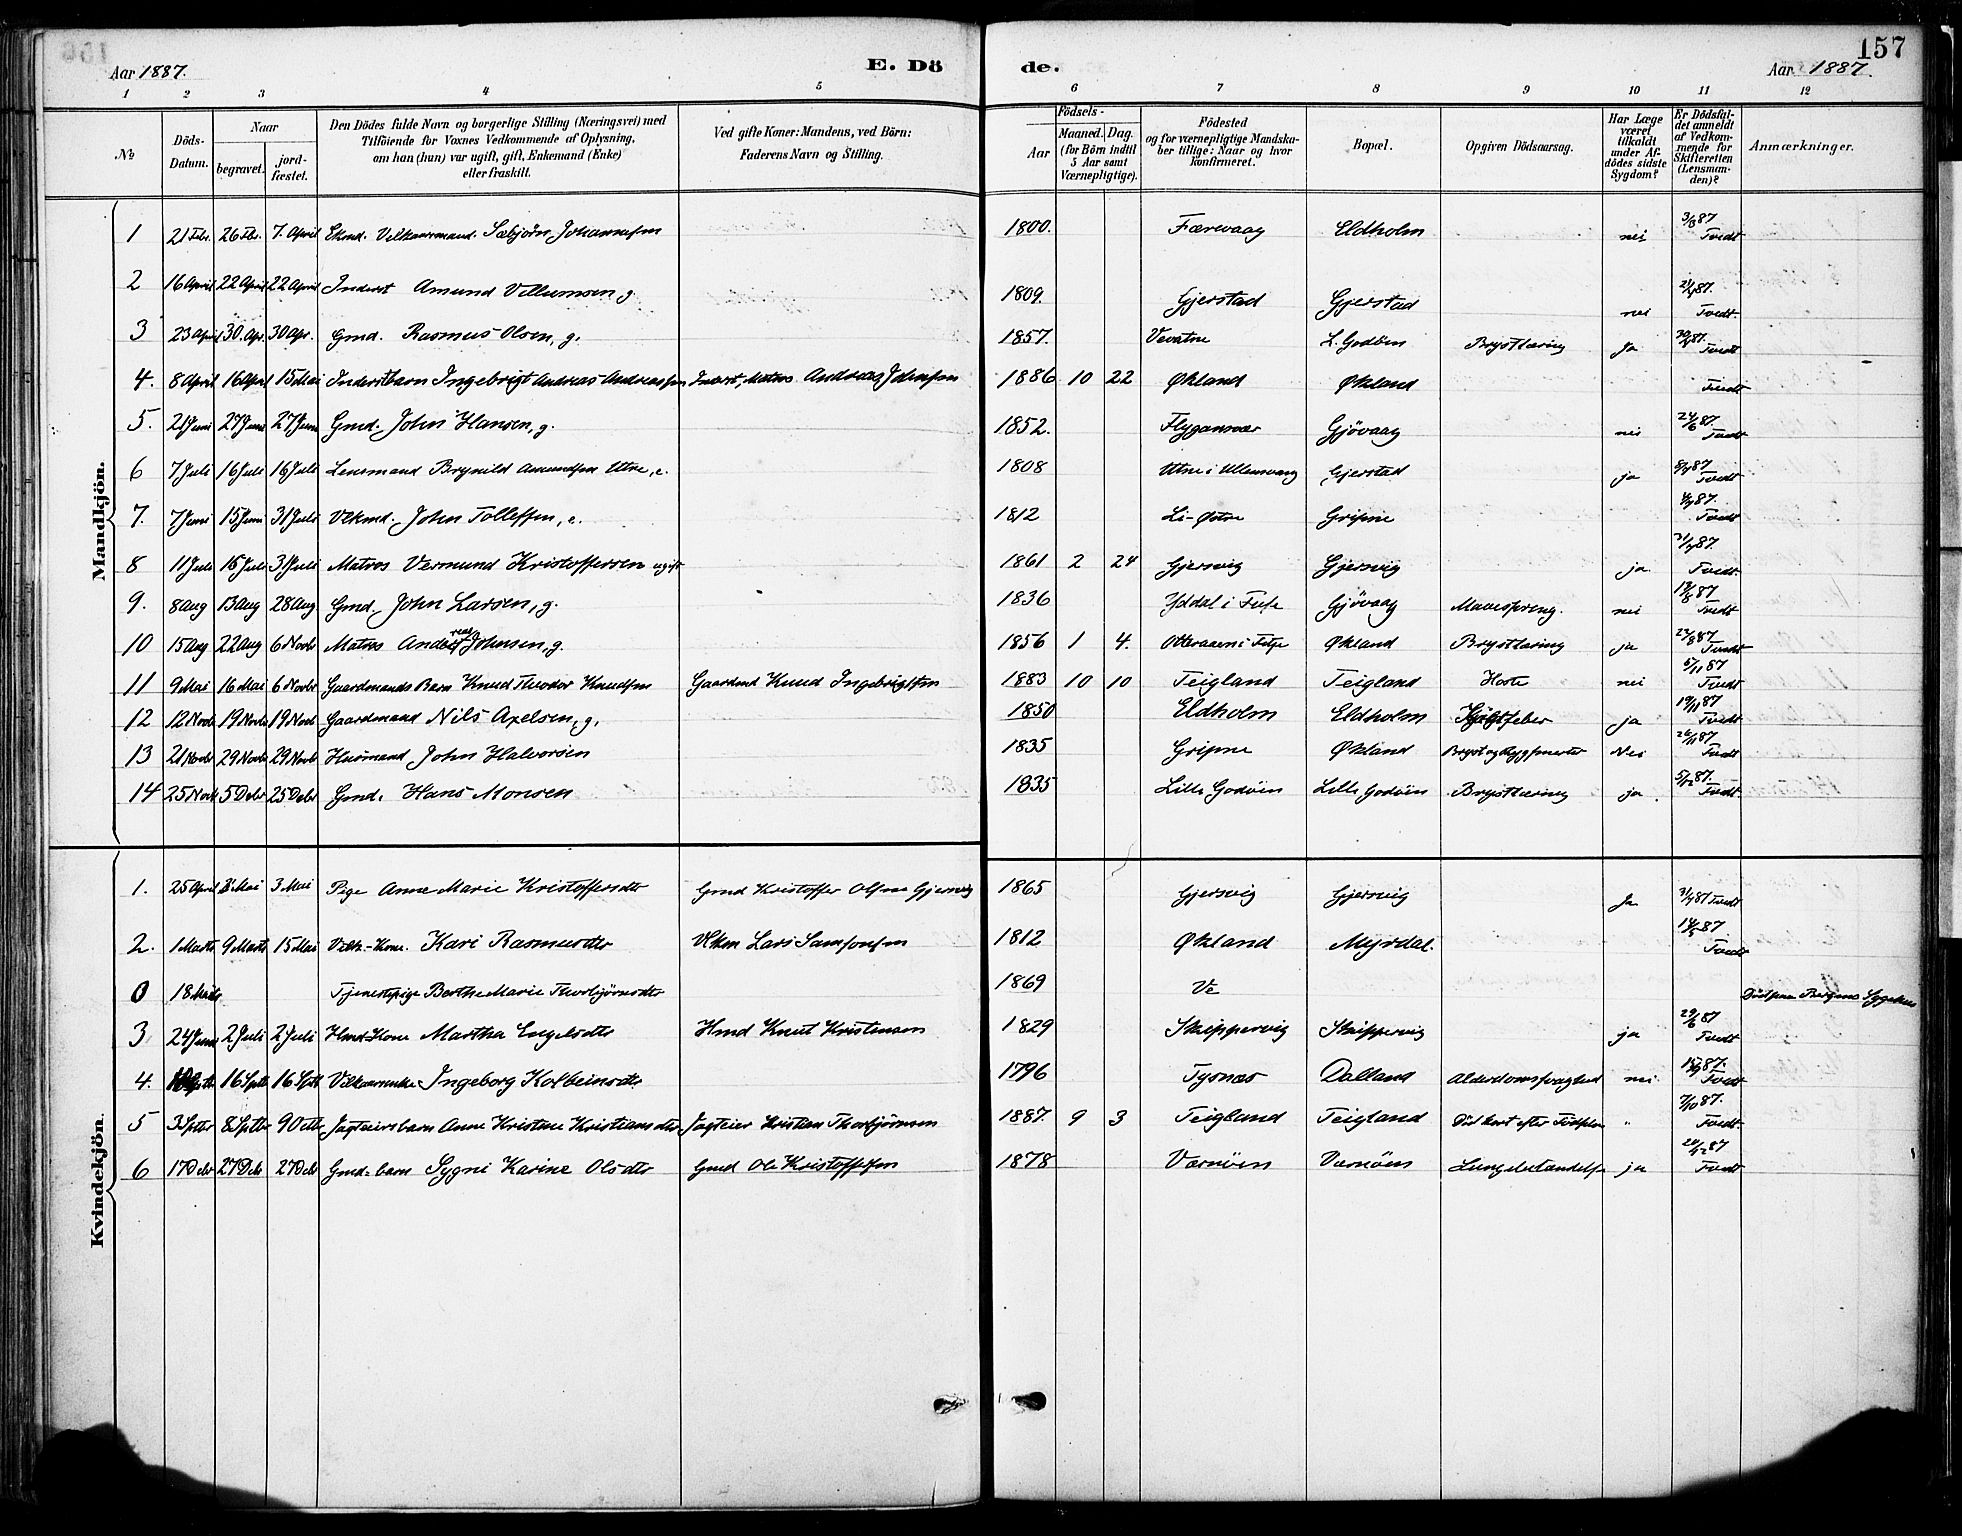 157
Aar 1887. E. Dö de. Aar 1887.
1 2 3 4 5 6 7 8 9 10 11 12
No.
Döds-Datum.
Naar
begravet.
jord-fæstet.
Den Dödes fulde Navn og borgerlige Stilling (Næringsvei) med
Tilföiende for Voxnes Vedkommende af Oplysning,
om han (hun) var ugift, gift, Enkemand (Enke)
eller fraskilt.
Ved gifte Koner: Mandens, ved Börn:
Faderens Navn og Stilling.
Födsels-
Aar
Maaned. Dag.
(for Börn indtil
5 Aar samt
Værnepligtige).
Födested
og for værnepligtige Mandska-
ber tillige: Naar og hvor
konfirmeret.
Bopæl.
Opgiven Dödsaarsag.
Har Læge
været
tilkaldt
under Af-
dödes sidste
Sygdom?
Er Dödsfal-
det anmeldt
af Vedkom-
mende for
Skifteretten
(Lensman-
den)?
Anmærkninger.
Mandkjön.
1 21 Febr. 26 Fbr. 7. April Ekmd. Vilkaarsmand. Sæbjörn Johannessen 1800. Færevaag Eldholm nei 3/3 87 Tvedt
2 16 April 22 April 22 April Inderst Amund Villumsen g. 1809. Gjerstad Gjerstad nei 21/4 87. Tvedt.
3 23 April 30. Apr. 30 Apr. Gmd. Rasmus Olsen, g. 1857. Vevatne L. Godöen Brysttæring Ja 30/4 87. Tvedt
4. 8 April 16 April 15 Mai Inderstbarn Ingebrigt Andreas Andreassen Inderst, Matros Andreas Johnsen 1886 10 22 Økland Økland Tvedt
5. 21 Juni 27 Juni 27 Juni Gmd. John Hansen, g. 1852. Flygansvær Gjövaag nei 24/6 87. Tvedt
6 7 Juli 16 Juli 16 Juli Lensmand Brynild Amundsen Utne, e. 1808 Utne i Ullensvang Gjerstad ja 8/7 87 Tvedt
7. 7 Juni 15 Juni 31 Juli Vlkmd. John Tollefsen, e. 1812 Li-Østre Gripne 87. Tvedt
8 11 Juli 16 Juli 31 Juli Matros Vermund Kristoffersen ugift 1861 2 24 Gjersvig Gjersvig ja 31/7 87. Tvedt.
9. 8 Aug 13 Aug 28 Aug Gmd. John Larsen, g. 1836 Yddal i Fuse Gjövaag Mavespreng. nei 13/8 87 Tvedt
10 15 Aug 22 Aug 6 Novbr Matros Andreas Johnsen, g. 1856 1 4. Økland Brysttæring ja 87 Tvedt
11 9 Mai 16 Mai 6 Novbr Gaardmands Barn Knud Theodor Knudsen Gaardmd Knud Ingebrigtsen 1883 10 10 Teigland Teigland Hoste nei 5/11 87 Tvedt
12 12 Novbr 19 Novbr 19 Novbr Gaardmand Nils Axelsen, g. 1850 Eldholm Eldholm ja 19/11 87 Tvedt
13 21 Novbr 29 Novbr 29 Novbr Husmand John Halvorsen 1835 Gripne Økland Bryst og Rygsmerter Nei 26/11 87 Tvedt
14 25 Novb 5 Debr 25 Debr Gmd. Hans Monsen 1835 Lille Godöen Lille Godöen Brysttæring ja 5/12 87. Tvedt.
Kvindekjön.
1. 25 April 3 Mai 3 Mai Pige Anne Marie Kristoffersdtr Gmd Kristoffer Olsen Gjersvig 1865 Gjersvig Gjersvig Ja 87 Tvedt
2. 1 Marts 9 Marts 15 Mai Vilk.-Kone. Kari Rasmusdtr Vlkm Lars Samsonsen 1812 Økland Myrdal. 14/5 87. Tvedt
0 18 Tjenestepige Berthe Marie Thorbjörnsdtr 1869 Ve Död paa Bergens Sygehus
3 24 Juni 2 Juli 2 Juli Hmd-Kone Martha Engelsdtr Hmd Knut Kristensen 1829 Skippervig Skippervig ja 29/6 87 Tvedt
4. 16 Sptb 16 Sptb Vilkaarsenke Ingeborg Kolbeinsdtr 1796 Tysnæs Dalland Alderdomssvaghed nei 87. Tvedt
5 3 Sptbr 8 Sptbr 9 Octb Jagteiersbarn Anne Kristine Kristiansdtr Jagteier Kristian Thorbjörnsen 1887. 9 3 Teigland Teigland Död kort efter Födselen " 7/10 87. Tvedt.
6 17 Debr 27 Debr 27 Debr Gmd-barn Sygni Karine Olsdtr Gmd Ole Kristoffersen 1878 Værnöen Værnöen Lungebetændelse ja 20/12 87 Tvedt